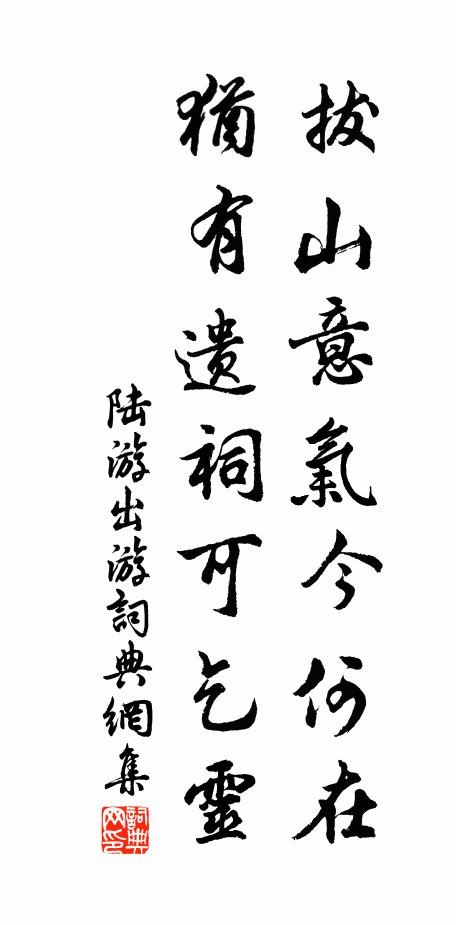 拔山意氣今何在
猶有遺祠可乞靈
陆游出游詞典網集
詞典网印